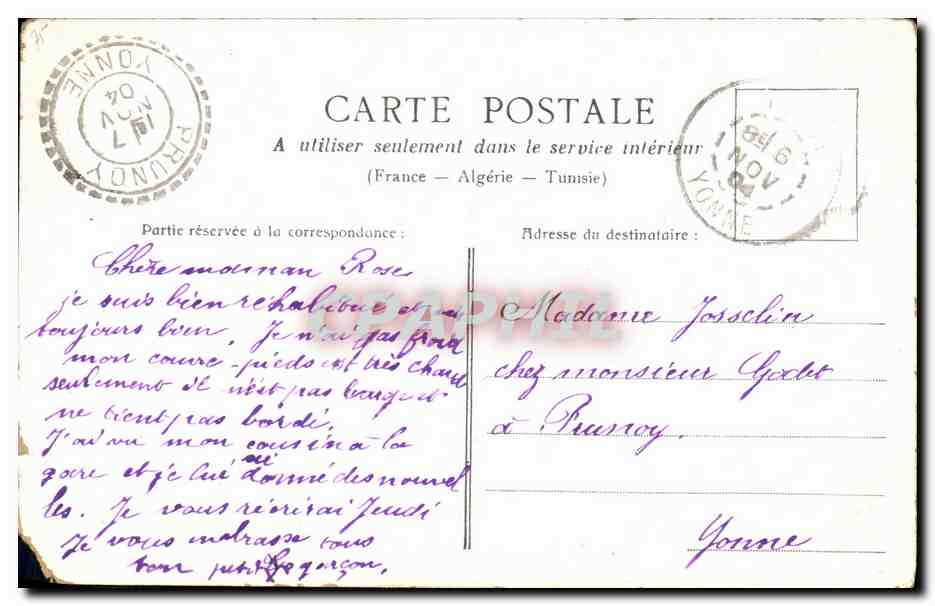 35
YONNE
PRUNOY
17
NOV
04
CARTE POSTALE
A utiliser seulement dans le service intérieur
(France — Algérie — Tunisie)
8E 6
NOV
04
YONNE
Partie réservée à la correspondance :
Adresse du destinataire :
CPAPHIL
Chère maman Rose
je suis bien réhabitué et
toujours bien. Je n'ai pas froid
mon couvre-pieds est très chaud
seulement il n'est pas large et
ne tient pas bordé.
J'ai vu mon cousin à la
gare et je lui ai donné des nouvel
les. Je vous réérirai Jeudi
Je vous mbrasse tous
ton petit garçon.
Madame Josselin
chez monsieur Godet
à Prunoy.
Yonne